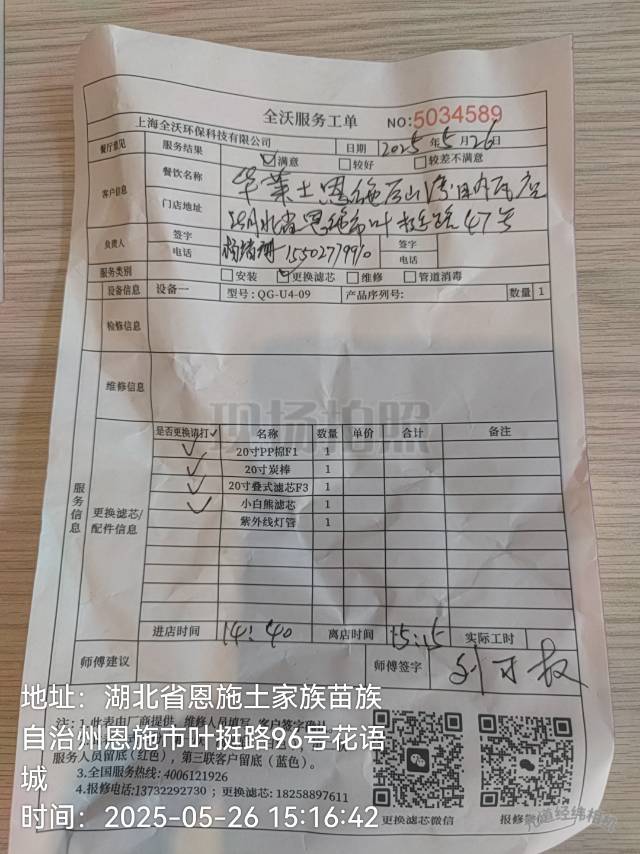 全沃服务工单
NO:5034589
上海全沃环保科技有限公司
日期 2025年5月26日
餐厅意见 服务结果 ☑满意 □较好 □较差不满意
客户信息 餐饮名称 华莱士恩施
门店地址 湖北省恩施市叶挺路47号
负责人 签字 签字
电话 电话
服务类别 □安装 ☑更换滤芯 □维修 □管道消毒
设备信息 设备一 型号:QG-U4-09 产品序列号: 数量 1
检修信息
维修信息
现场拍照
服务信息
更换滤芯/配件信息
是否更换请打✓ 名称 数量 单价 合计 备注
✓ 20寸PP棉F1 1
✓ 20寸炭棒 1
✓ 20寸叠式滤芯F3 1
✓ 小白熊滤芯 1
紫外线灯管 1
进店时间 14:40 离店时间 15:15 实际工时
师傅建议 师傅签字
注:1.此表由厂商提供,维修人员填写,客户签字确认
服务人员留底(红色),第三联客户留底(蓝色)。
3.全国服务热线:4006121926
4.报修电话:13732292730;更换滤芯:18258897611
更换滤芯微信
报修
地址:湖北省恩施土家族苗族
自治州恩施市叶挺路96号花语
城
时间:2025-05-26 15:16:42
经纬相机